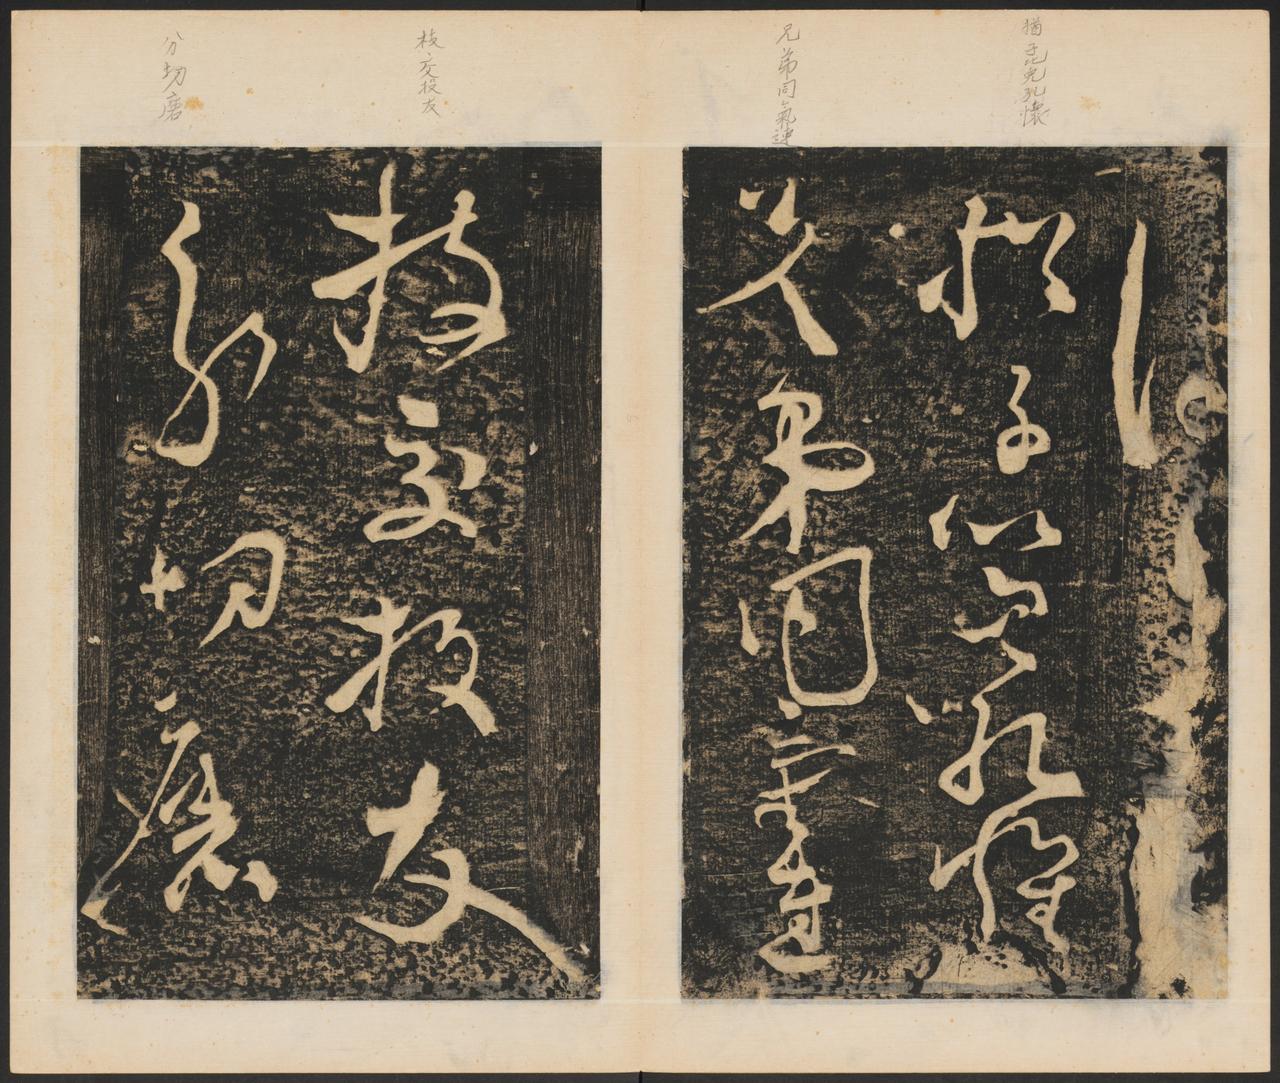 猶子比兒孔懷
兄弟同氣連
枝交投友
分切磨
猶子比兒孔懷
兄弟同氣連
枝交投友
分切磨